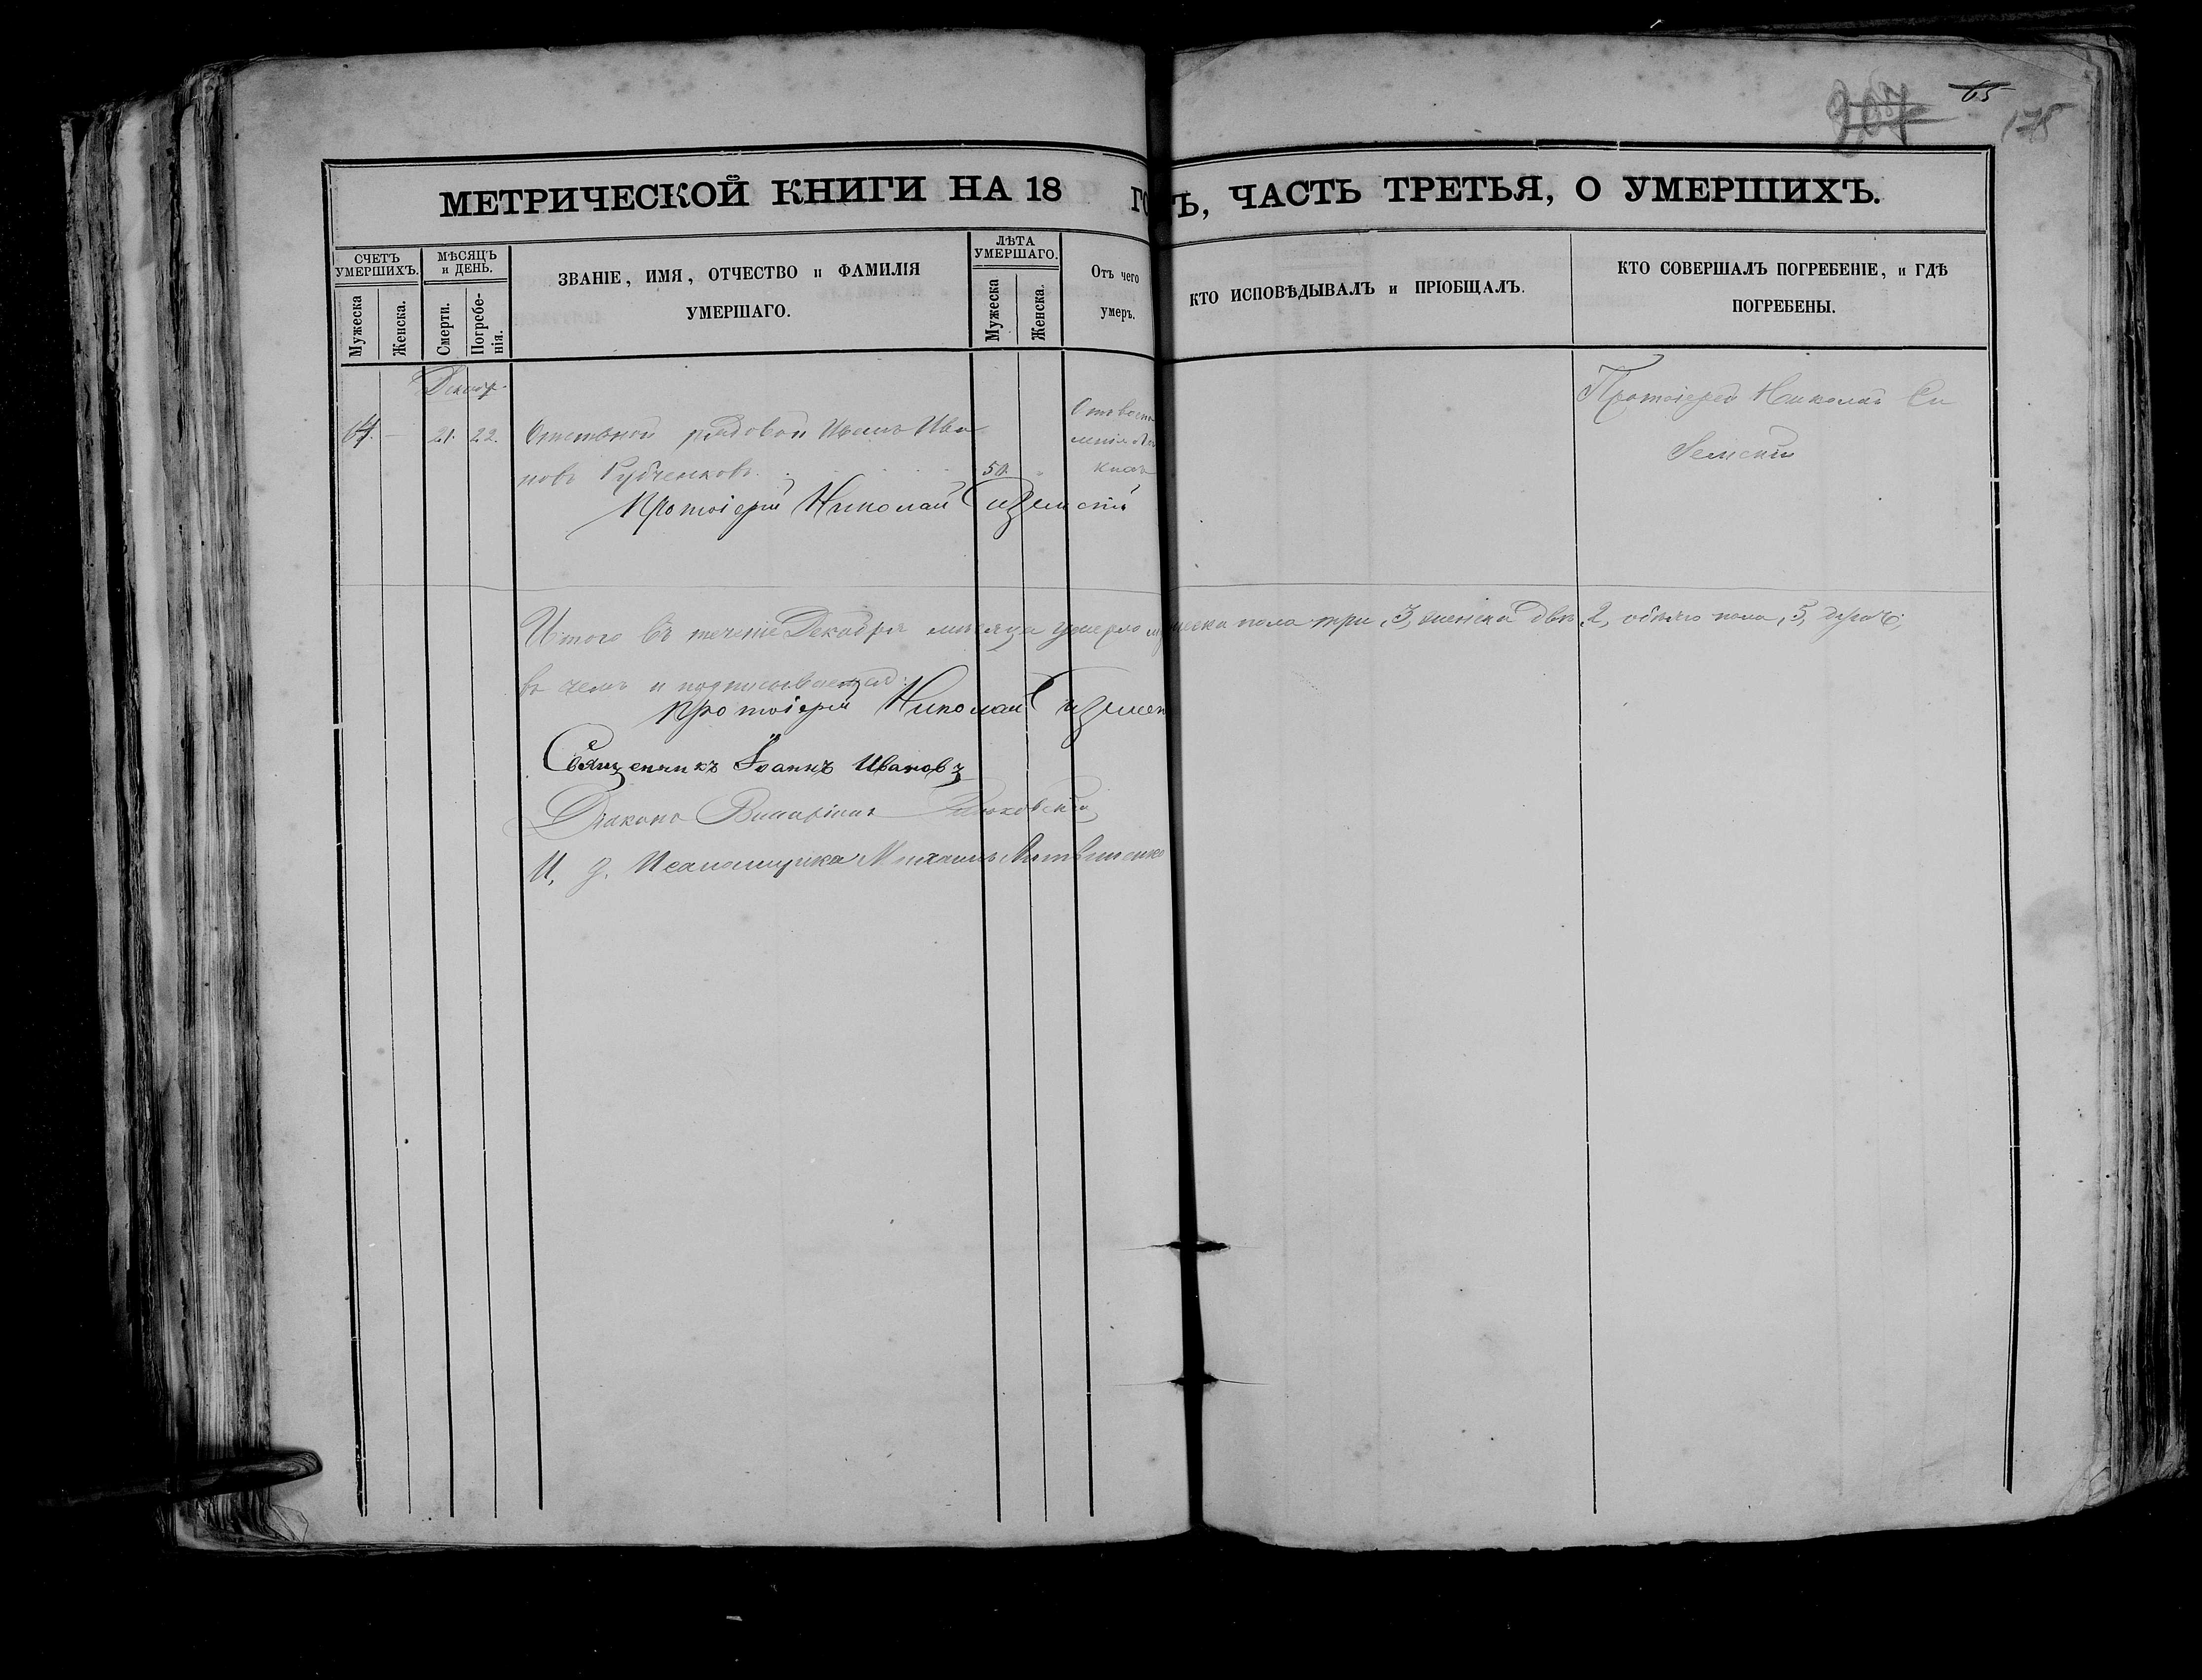 207 65 178
МЕТРИЧЕСКОЙ КНИГИ НА 18 ГО Ъ, ЧАСТЬ ТРЕТЬЯ, О УМЕРШИХЪ.
СЧЕТЪ УМЕРШИХЪ.
Мужеска
Женска.
МѢСЯЦЪ и ДЕНЬ.
Смерти.
Погребе-
нія.
ЗВАНІЕ, ИМЯ, ОТЧЕСТВО и ФАМИЛІЯ
УМЕРШАГО.
ЛѢТА УМЕРШАГО.
Мужеска
Женска.
Отъ чего
умеръ.
КТО ИСПОВѢДЫВАЛЪ и ПРІОБЩАЛЪ.
КТО СОВЕРШАЛЪ ПОГРЕБЕНІЕ, и ГДѢ
ПОГРЕБЕНЫ.
Декабр.
Протоіерей Николай Си
21. 22. Отставной рядовой Ива
земскій
новъ 50.
Протоіерей Николай Сиземскій
Итого въ теченіе Декабря мѣсяца умерло мужеска пола три, 3, женска двѣ, 2, обоего пола, 5,
въ чемъ и подписываемся:
Протоіерей Николай Сиземск
Священникъ Іоаннъ Ивановъ
Діаконъ
И. д. Псаломщика Михаилъ Литвиненко